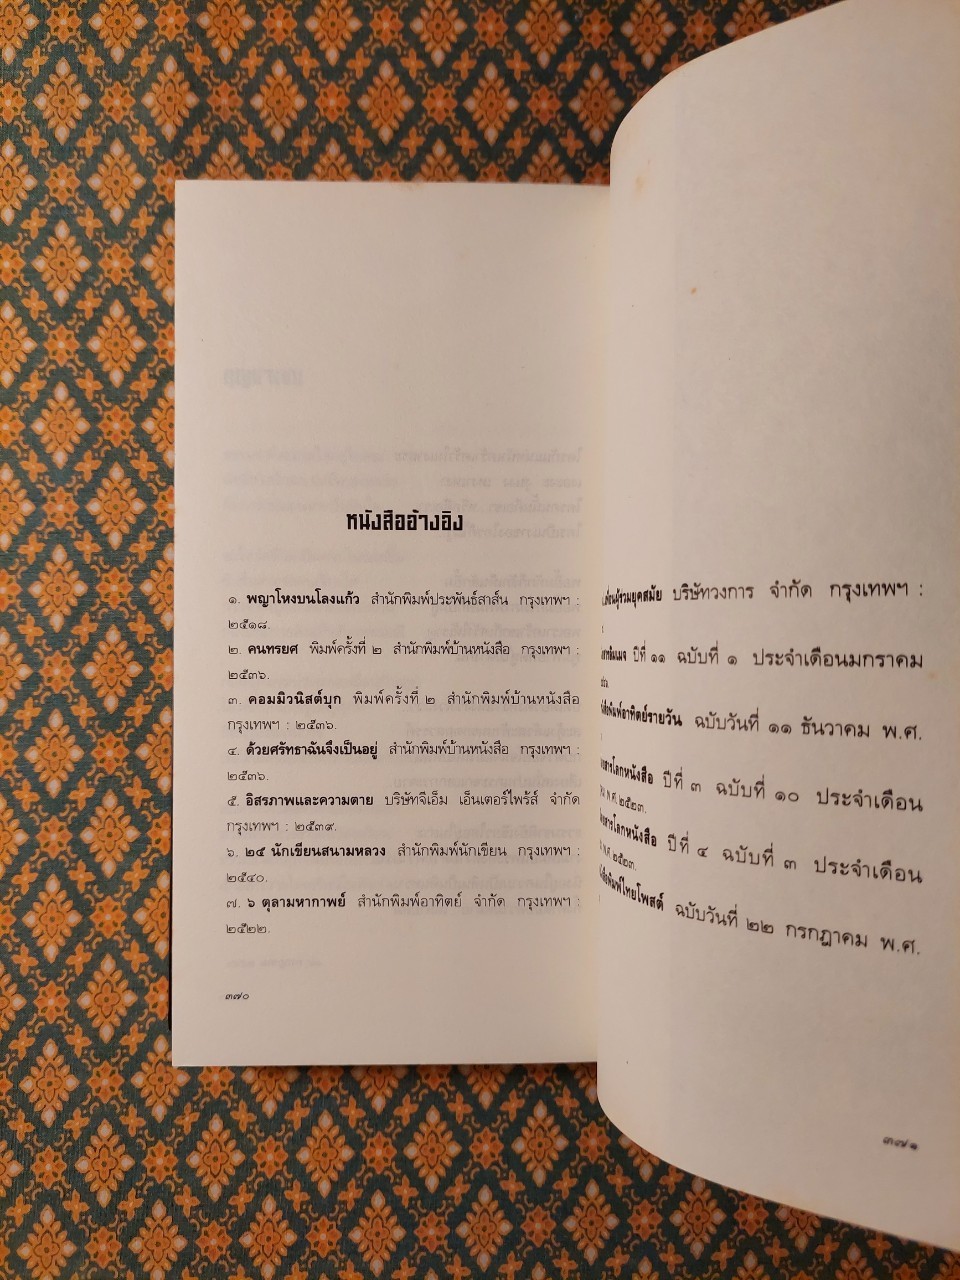 หนังสืออ้างอิง
๑. พญาโหงบนโลงแก้ว สำนักพิมพ์ประพันธ์สาส์น กรุงเทพฯ :
๒๕๑๘.
๒. คนทรยศ พิมพ์ครั้งที่ ๒ สำนักพิมพ์บ้านหนังสือ กรุงเทพฯ :
๒๕๓๖.
๓. คอมมิวนิสต์บุก พิมพ์ครั้งที่ ๒ สำนักพิมพ์บ้านหนังสือ
กรุงเทพฯ : ๒๕๓๖.
๔. ด้วยศรัทธาฉันจึงเป็นอยู่ สำนักพิมพ์บ้านหนังสือ กรุงเทพฯ :
๒๕๓๖.
๕. อิสรภาพและความตาย บริษัทจีเอ็ม เอ็นเตอร์ไพร้ส์ จำกัด
กรุงเทพฯ : ๒๕๓๙.
๖. ๒๕ นักเขียนสนามหลวง สำนักพิมพ์นักเขียน กรุงเทพฯ :
๒๕๔๐.
๗. ๖ ตุลามหากาพย์ สำนักพิมพ์อาทิตย์ จำกัด กรุงเทพฯ :
๒๕๒๒.
๓๗๐
ร่วมยุคสมัย บริษัทวงการ จำกัด กรุงเทพฯ :
ปีที่ ๑๑ ฉบับที่ ๑ ประจำเดือนมกราคม
อาทิตย์รายวัน ฉบับวันที่ ๑๑ ธันวาคม พ.ศ.
สารโลกหนังสือ ปีที่ ๓ ฉบับที่ ๑๐ ประจำเดือน
พ.ศ. ๒๕๒๓.
สารโลกหนังสือ ปีที่ ๔ ฉบับที่ ๓ ประจำเดือน
พ.ศ. ๒๕๒๓.
พิมพ์ไทยโพสต์ ฉบับวันที่ ๒๒ กรกฎาคม พ.ศ.
๓๗๑